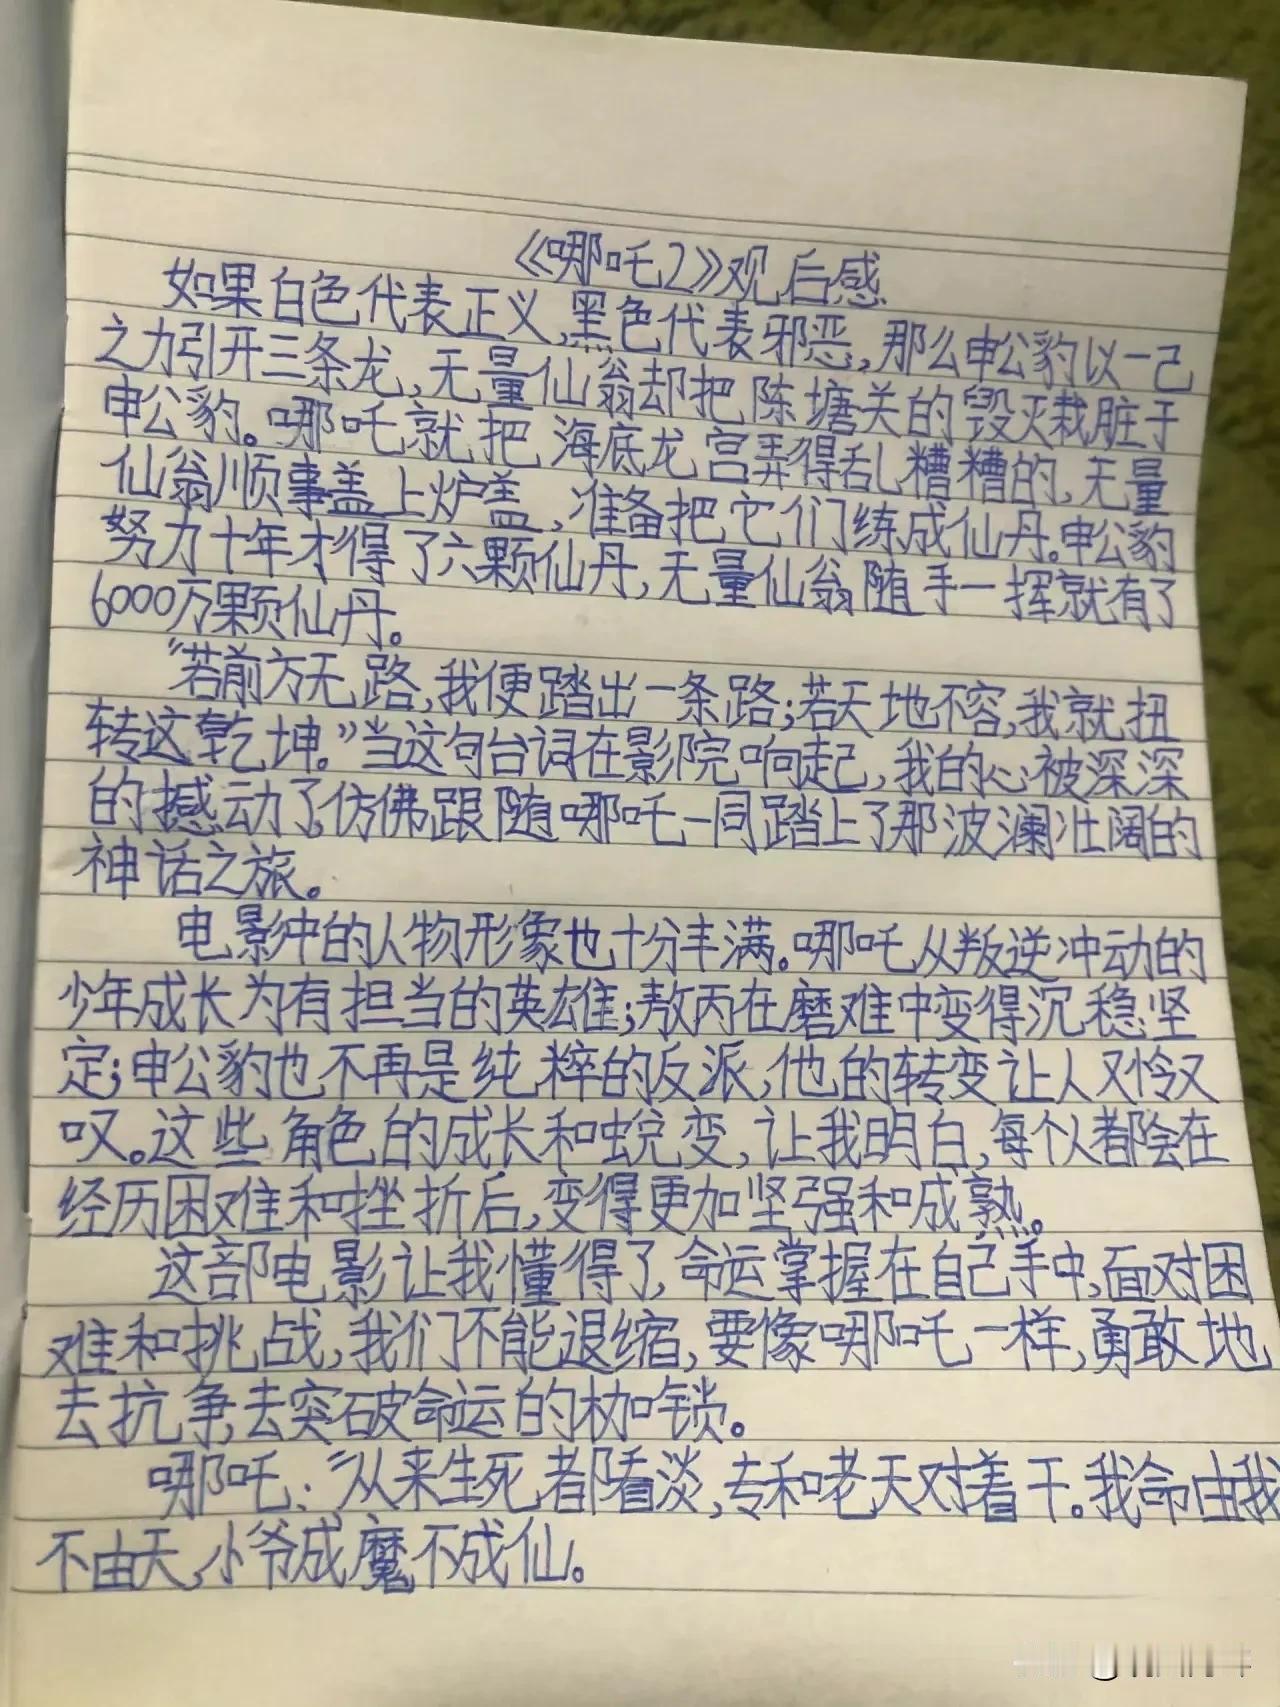 《哪吒2》观后感
如果白色代表正义,黑色代表邪恶,那么申公豹以一己
之力引开三条龙,无量仙翁却把陈塘关的毁灭栽脏于
申公豹。哪吒就把海底龙宫弄得乱糟糟的,无量
仙翁顺事盖上炉盖,准备把它们练成仙丹。申公豹
努力十年才得了六颗仙丹,无量仙翁随手一挥就有了
6000万颗仙丹。
“若前方无路,我便踏出一条路;若天地不容,我就扭
转这乾坤。”当这句台词在影院响起,我的心被深深
的撼动了,仿佛跟随哪吒一同踏上了那波澜壮阔的
神话之旅。
电影中的人物形象也十分丰满。哪吒从叛逆冲动的
少年成长为有担当的英雄;敖丙在磨难中变得沉稳坚
定;申公豹也不再是纯粹的反派,他的转变让人又怜又
叹。这些角色的成长和蜕变,让我明白,每个人都会在
经历困难和挫折后,变得更加坚强和成熟。
这部电影让我懂得了,命运掌握在自己手中,面对困
难和挑战,我们不能退缩,要像哪吒一样,勇敢地
去抗争,去突破命运的枷锁。
哪吒:“从来生死都看淡,专和老天对着干。我命由我
不由天,小爷成魔不成仙。